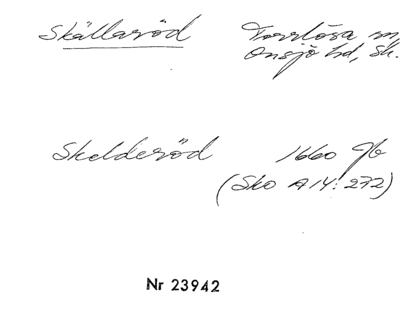 Skällaröd Torrlösa sn,
Onsjö hd, Sk.
Skelderöd 1660 Jb
(Sko A 14: 272)
Nr 23942